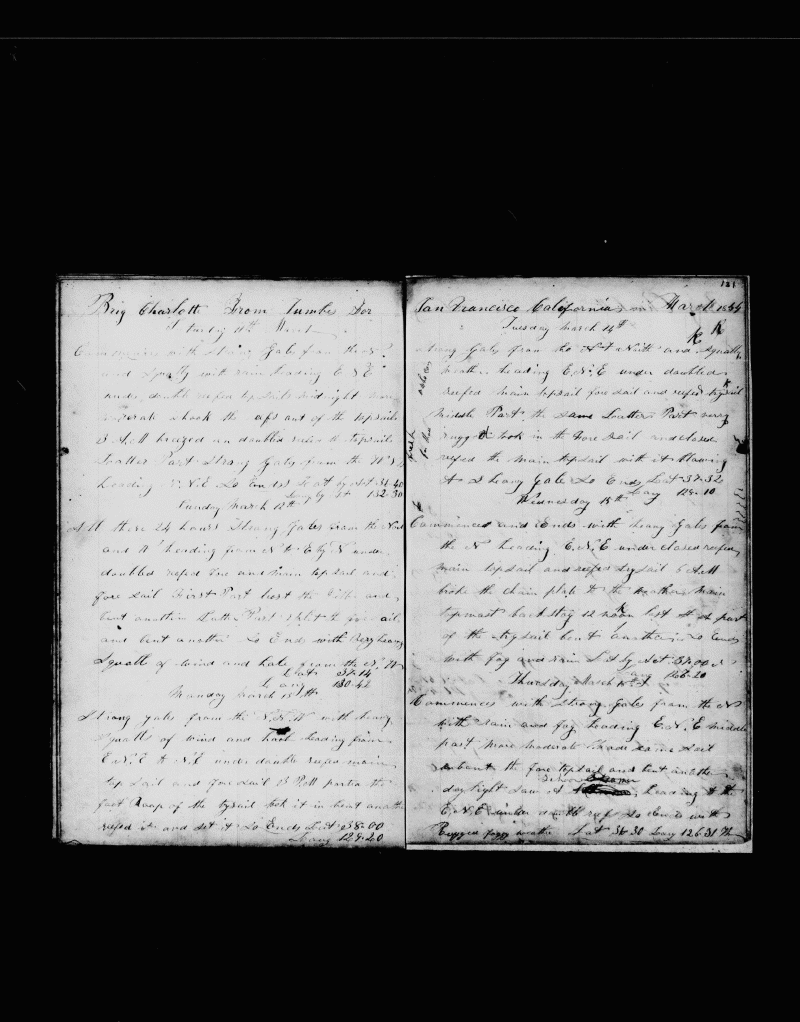 Brig Charlotte From Tumbes For
Saturday 11th March
Commences with Strong Gales from the N
and Squally with rain heading E N E
under double reefed topsails midnight more
moderate shook the reefs out of the topsails
3 A.M breezed an doubled reefed the topsails
Latter Part Strong Gales from the N
heading N E So Ends Lat by Act 36-40
Long by Act 132-30
Sunday March 12th
All these 24 hours Strong Gales from the
and heading from N to E by N under
doubled reefed Fore and main top sail and
fore sail First Part lost the and
bent another Latter Part split the fore sail
and bent another So Ends with Very heavy
Squalls of wind and hale from the N. W
Lat 37-14
Long 130-42
Monday March 13th
Strong gales from the N.N.W with heavy
squalls of wind and hail heading from
E.N.E to N.E under double reefed main
top sail and foresail 3 P.M parted the
foot Roap of the trysail took it in bent another
reefed it and set it So Ends Lat 38-00
Long 129-20
121
San Francisco California March 1854
Tuesday March 14th
Strong Gales from the N & North and Squally
weather heading E.N.E under doubled
reefed main topsail fore sail and reefed trysail
Middle Part the same Latter Part very
rugged took in the Fore Sail and closed
reefed the main topsail with it blowing
A Heavy Gale So Ends Lat 37-32
Long 128-10
Wednesday 15th
Commences and Ends with heavy Gales from
the N heading E.N.E under closed reefed
main topsail and reefed trysail 6 A.M
broke the chain plate to the weather main
topmast back stay 12 noon lost A part
of the trysail bent another So Ends
with fog and rain Lat by Act 37-00
126-20
Thursday March 16th
Commences with Strong Gales from the N
with rain and fog heading E.N.E middle
part more moderate made some sail
unbent the fore topsail and bent another
Steamer
day light Saw A heading to the
E.N.E under double reef So Ends with
Rugged foggy weather Lat 36-30 Long 126-31